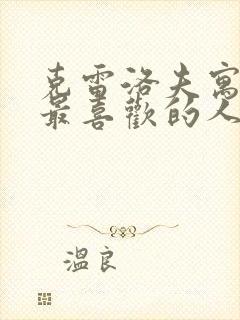 克雷洛夫寓
最喜歡的人
溫良